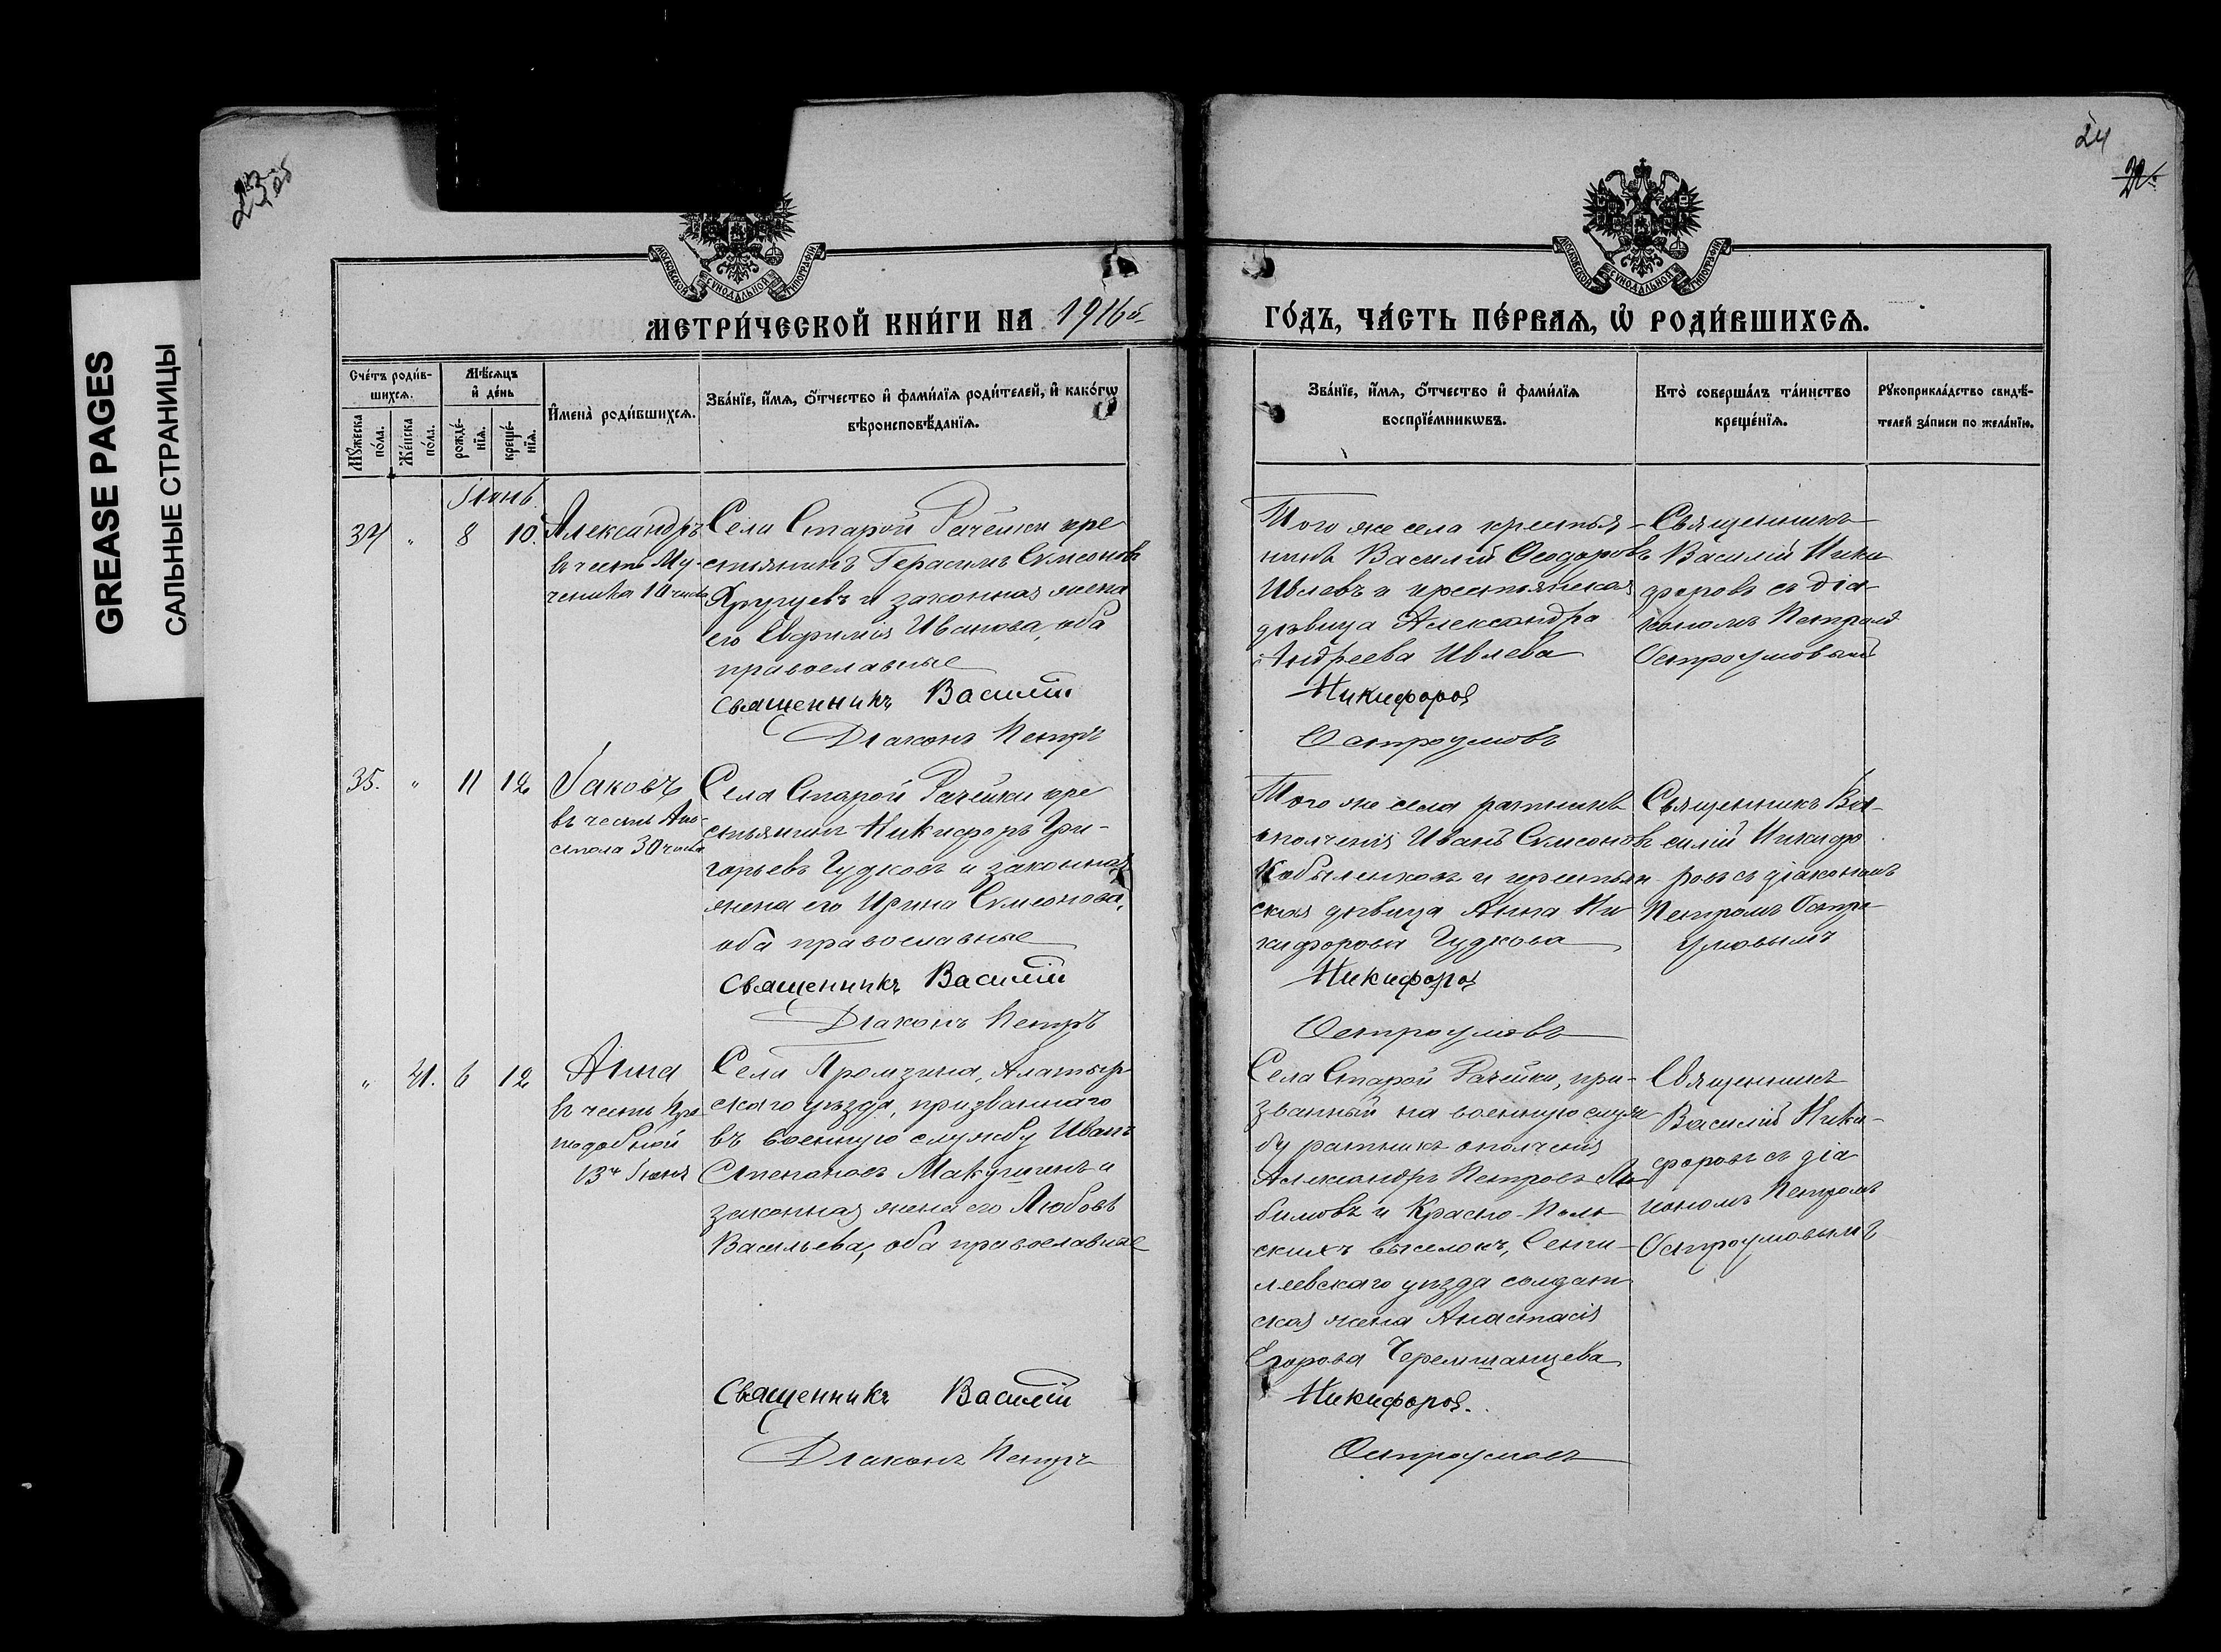 GREASE PAGES
САЛЬНЫЕ СТРАНИЦЫ
24
МОСКОВСКОЙ СѴНОДАЛЬНОЙ ТИПОГРАФІИ
МОСКОВСКОЙ СѴНОДАЛЬНОЙ ТИПОГРАФІИ
МЕТРИ́ЧЕСКОЙ КНИ́ГИ НА 1916
ГО́ДЪ, ЧА́СТЬ ПЕ́РВАѦ, Ѽ РОДИ́ВШИХСѦ.
Сче́тъ роди́в-
шихсѧ.
Мꙋ́жеска
по́ла.
Же́нска
по́ла.
Мѣ́сѧцъ
и҆ де́нь
рожде́-
нїѧ.
креще́-
нїѧ.
И҆мена̀ роди́вшихсѧ.
Зва́нїе, и҆́мѧ, ѻ҆́тчество и҆ фами́лїѧ роди́телей, и҆ како́гѡ
вѣроисповѣ́данїѧ.
Зва́нїе, и҆́мѧ, ѻ҆́тчество и҆ фами́лїѧ
воспрїе́мникѡвъ.
Кто̀ соверша́лъ та́инство
креще́нїѧ.
Рꙋкоприкла́дство свидѣ́-
телей за́писи по жела́нїю.
Іюнь
34 " 8 10.
Александръ
въ честь Му-
ченика 10 числа
Села Старой Рачейки кре
стьянинъ Герасимъ Сѵмеоновъ
и законная жена
его Евфимія Иванова, оба
православные
Священникъ Василій
Діаконъ Петръ
Того же села крестья-
нинъ Василій Ѳеодоровъ
Ивлевъ и крестьянская
дѣвица Александра
Андреева Ивлева
Никифоровъ
Остроумовъ
Священникъ
Василій Ники
форовъ съ діа-
кономъ Петромъ
Остроумовымъ
35. " 11 12
Іаковъ
въ честь Апо-
стола 30 числа
Села Старой Рачейки кре
стьянинъ Никифоръ Гри-
горьевъ Гудковъ и законная
жена его Ирина Сѵмеонова,
оба православные
Священникъ Василій
Діаконъ Петръ
Того же села ратникъ
ополченія Иванъ Сѵмеоновъ
Кобыленковъ и крестьян
ская дѣвица Анна Ни
кифорова Гудкова
Никифоровъ
Остроумовъ
Священникъ Ва-
силій Никифо
ровъ съ діакономъ
Петромъ Остро-
умовымъ
" 21. 6 12
Анна
въ честь Пре-
подобной
13 ч Іюня
Села Промзина, Алатыр-
скаго уѣзда, призваннаго
въ военную службу Иванъ
Степановъ Макушинъ и
законная жена его Любовь
Васильева, оба православные
Священникъ Василій
Діаконъ Петръ
Села Старой Рачейки, при-
званный на военную служ
бу ратникъ ополченія
Александръ Петровъ Лю
бимовъ и Красно-Поль
скихъ выселокъ, Сенги-
леевскаго уѣзда солдат
ская жена Анастасія
Егорова Черемшанцева
Никифоровъ.
Остроумовъ
Священникъ
Василій Ники-
форовъ съ діа
кономъ Петромъ
Остроумовымъ